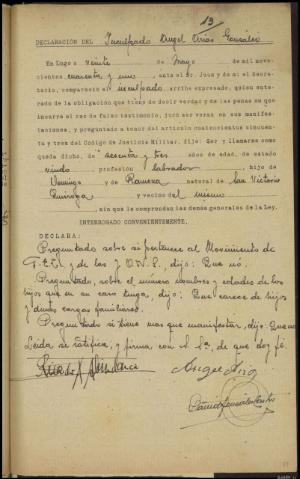 13
DECLARACIÓN DEL Inculpado Angel Arias González
En Lugo a veinte de Mayo de mil nove-
cientos cuarenta y uno, ante el Sr. Juez y de mi el Secre-
tario, comparecio el inculpado, arriba expresado, quien ente-
rado de la obligación que tiene de decir verdad y de las penas en que
incurre el reo de falso testimonio, juró ser veraz en sus manifes-
taciones, y preguntado a tenor del artículo cuatrocientos cincuen-
ta y tres del Código de Justicia Militar, dijo: Ser y llamarse como
queda dicho, de sesenta y tres años de edad, de estado
viudo profesión labrador, hijo de
Domingo y de Ramona, natural de San Victorio
Quiroga y vecino del mismo
, sin que le comprendan las demás generales de la Ley.
INTERROGADO CONVENIENTEMENTE.
DECLARA:
Preguntado sobre si pertenece al Movimiento de
F.E.T. y de las J.O.N.S., dijo: Que nó.
Preguntado, sobre el número nombres y edades de los
hijos que en su caso tenga, dijo: Que carece de hijos
y demás cargas familiares.
Preguntado si tiene mas que manifestar, dijo: Que no
Leida se ratifica, y firma con el Sr. de que doy fé.
Angel Arias